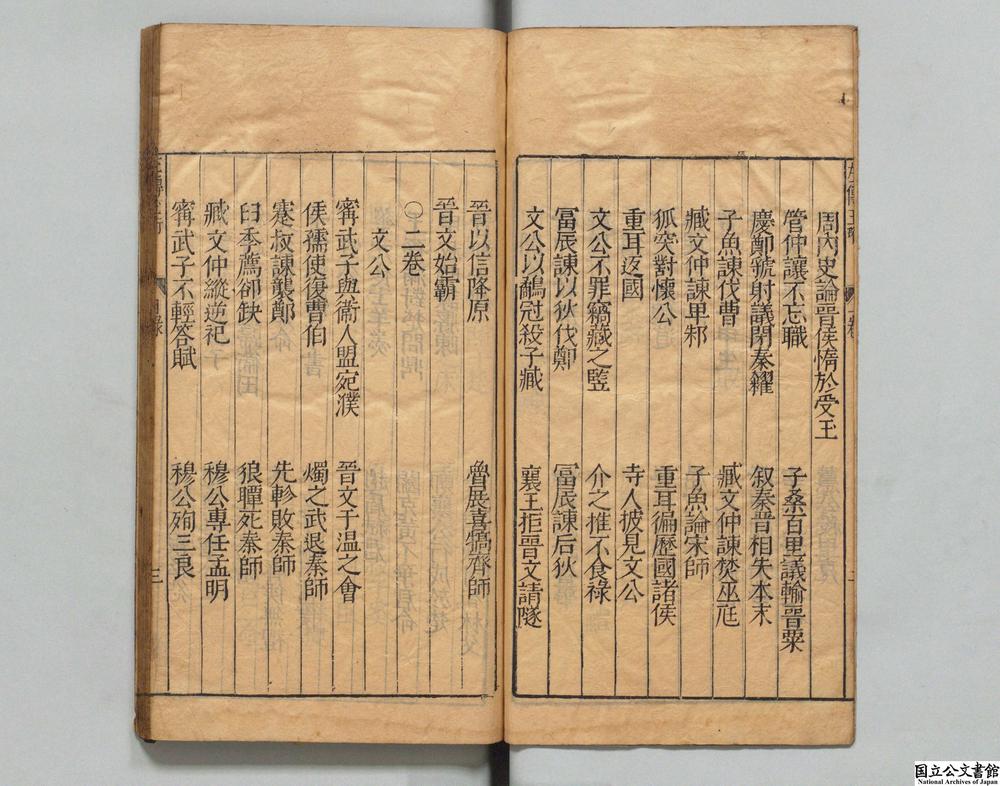 周内史論晋侯惰於受王
管仲讓不忘職
子桑百里議輸晋粟
慶鄭虢射議閉秦糴
叙秦晋相失本末
子魚諫伐曹
臧文仲諫焚巫尫
臧文仲諫卑邾
子魚論宋師
狐突對懷公
重耳徧歷國諸侯
重耳返國
寺人披見文公
文公不罪竊藏之豎
介之推不食祿
富辰諫以狄伐鄭
富辰諫后狄
文公以鷸冠殺子臧
襄王拒晋文請隧
晋以信降原
魯展喜犒齊師
晋文始霸
○二卷
文公
甯武子與衛人盟宛濮
晋文于温之會
侯獳使復曹伯
燭之武退秦師
蹇叔諫襲鄭
先軫敗秦師
臼季薦卻缺
狼瞫死秦師
臧文仲縱逆祀
穆公專任孟明
甯武子不輕答賦
穆公殉三良
目錄
三
国立公文書館
National Archives of Japan